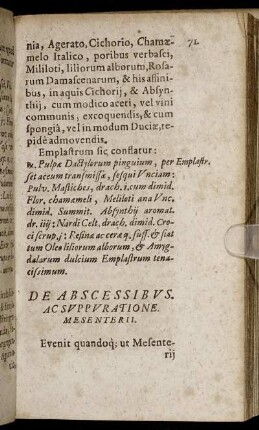 nia, Agerato, Cichorio, Chamæ-
71
melo Italico, poribus verbasci,
Mililoti, liliorum alborum, Rosa-
rum Damascenarum, & his affini-
bus, in aquis Cichorij, & Absyn-
thij, cum modico aceti, vel vini
communis, excoquendis, & cum
spongiâ, vel in modum Duciæ, te-
pidè admovendis.
Emplastrum sic conflatur:
℞. Pulpæ Dactylorum pinguium, per
Emplastr.
set aceum transmissæ, sesqui Vnciam:
Pulv. Mastiches, drach. i. cum dimid.
Flor. chamæmeli, Meliloti ana Vnc.
dimid. Summit. Absynthij aromat.
dr. iiij: Nardi Celt. drach. dimid. Cro-
ci scrup. j: Resinæ ac ceræ q. suff. & fiat
tum Oleo liliorum alborum, & Amyg-
dalarum dulcium Emplastrum tena-
cissimum.
DE ABSCESSIBVS.
AC SVPPVRATIONE
MESENTERII.
Evenit quandoq; ut Mesente-
rij